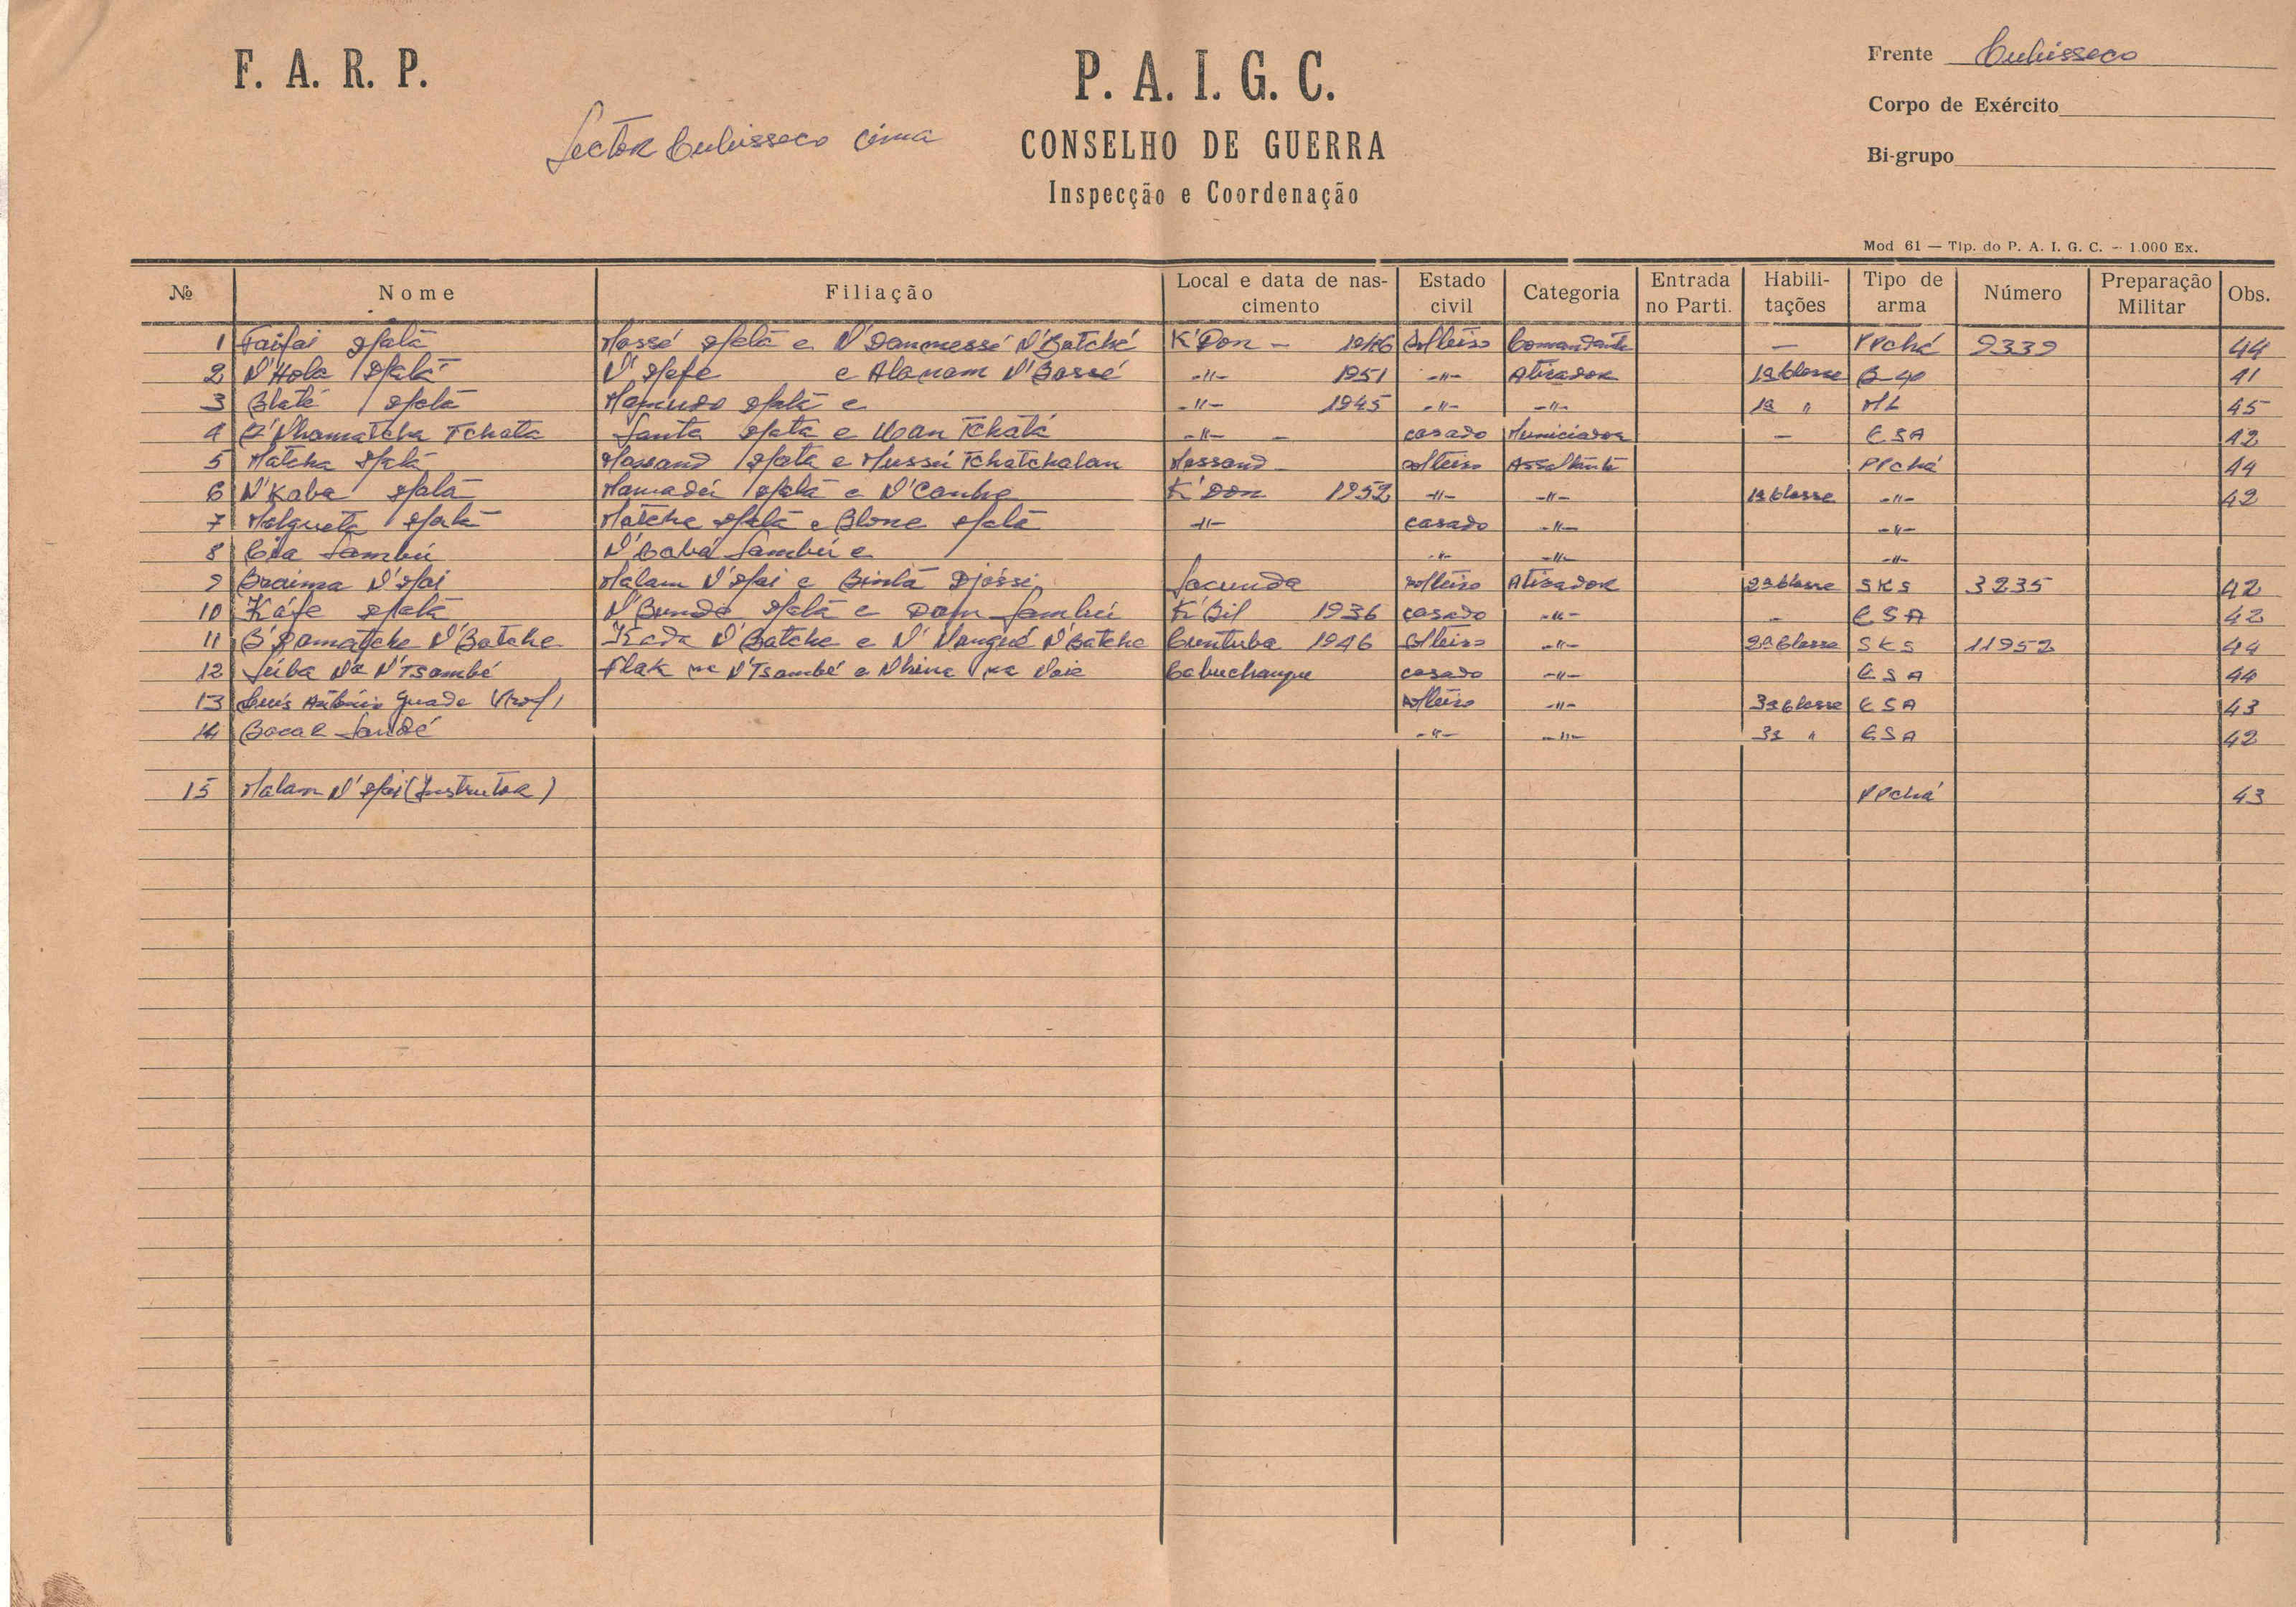 F. A. R. P.
P. A. I. G. C.
CONSELHO DE GUERRA
Inspecção e Coordenação
Sector Cubisseco cima
Frente Cubisseco
Corpo de Exército
Bi-grupo
Mod 61 — Tip. do P. A. I. G. C. — 1.000 Ex.
№ Nome Filiação Local e data de nascimento Estado civil Categoria Entrada no Parti. Habilitações Tipo de arma Número Preparação Militar Obs.
1 Faifai Malá Massé Malá e N'Batché K'Don - 1946 solteiro Comandante — PPchá 9339 44
2 N'Hola Malá e Alanam N'Bassé -"- 1951 -"- Atirador 1ª Classe B-40 41
3 Blaté Malá Malá e -"- 1945 -"- -"- 1ª " ML 45
4 Tchata Santa Malá e Tchatá -"- - casado Municiador — ESA 42
5 Matcha Malá Massand Malá e Mussú Tchatchalam Massand solteiro Assaltante PPchá 44
6 N'Kaba Malá Mamadú Malá e N'Canhe K'Don 1952 -"- -"- 1ª Classe -"- 42
7 Malgueta Malá Matcha Malá e Blone Malá -"- casado -"- -"-
8 Sambú N'Cabá Sambú e -"- -"- -"-
9 Braima N'Mai Malam N'Mai e Bintá Djassi Jacunda solteiro Atirador 2ª Classe SKS 3235 42
10 Káfe Malá N'Bunde Malá e Dam Sambú K'Bil 1936 casado -"- - ESA 42
11 N'Batche Kada N'Batche e N'Nangué N'Batche Cuntuba 1946 Solteiro -"- 2ª Classe SKS 11952 44
12 Na N'Tsambé Flak na N'Tsambé e Nhina na Cabuchanque casado -"- ESA 44
13 Luís António Guade solteiro -"- 3ª Classe ESA 43
14 Bacar Sandé -"- -"- 3ª " ESA 42
15 Malam N'Mai (Instrutor) PPchá 43